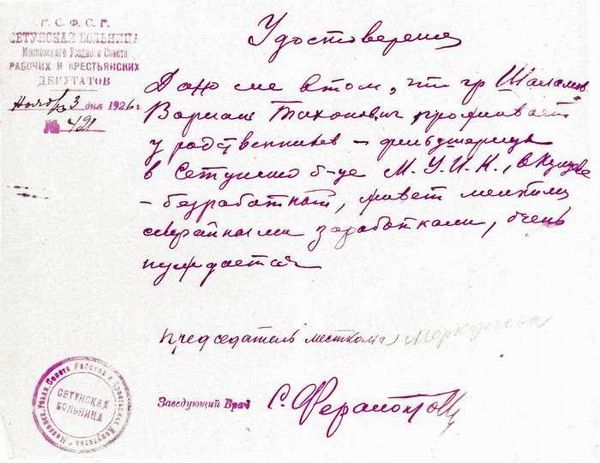 Р. С. Ф. С. Р.
СЕТУНСКАЯ БОЛЬНИЦА
Московского Уездного Совета
РАБОЧИХ И КРЕСТЬЯНСКИХ
ДЕПУТАТОВ
Ноября 3 дня 1926 г.
№ 491
Удостоверение
Дано сие в том, что гр Шаламов
Варлам Тихонович проживает
у родственников – фельдшерицы
в Сетунской б-це М.У.И.К., в Кунцеве
– безработный, живет мелкими
случайными заработками, очень
нуждается
Председатель месткома
Заведующий Врач
СЕТУНСКАЯ
БОЛЬНИЦА